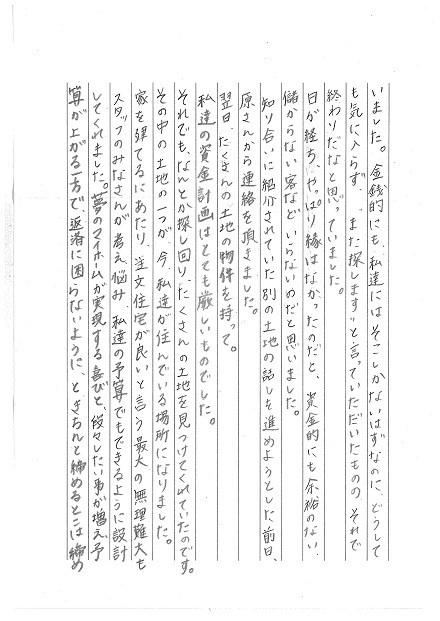 いました。金銭的にも、私達にはそこしかないはずなのに、どうして
も気に入らず、“また探します”と言っていただいたものの、それで
終わりだなと思っていました。
日が経ち、やっぱり縁はなかったのだと、資金的にも余裕のない、
儲からない客などいらないのだと思いました。
知り合いに紹介されていた別の土地の話しを進めようとした前日、
原さんから連絡を頂きました。
翌日、たくさんの土地の物件を持って。
私達の資金計画はとても厳しいものでした。
それでも、なんとか探し回り、たくさんの土地を見つけてくれていたのです。
その中の土地の一つが、今、私達が住んでいる場所になりました。
家を建てるにあたり、注文住宅が良いと言う最大の無理難大も
スタッフのみなさんが考え悩み、私達の予算でもできるように設計
してくれました。夢のマイホームが実現する喜びと、段々したい事が増え、予
算が上がる一方で、返済に困らないように、ときちんと締めるとこは締め